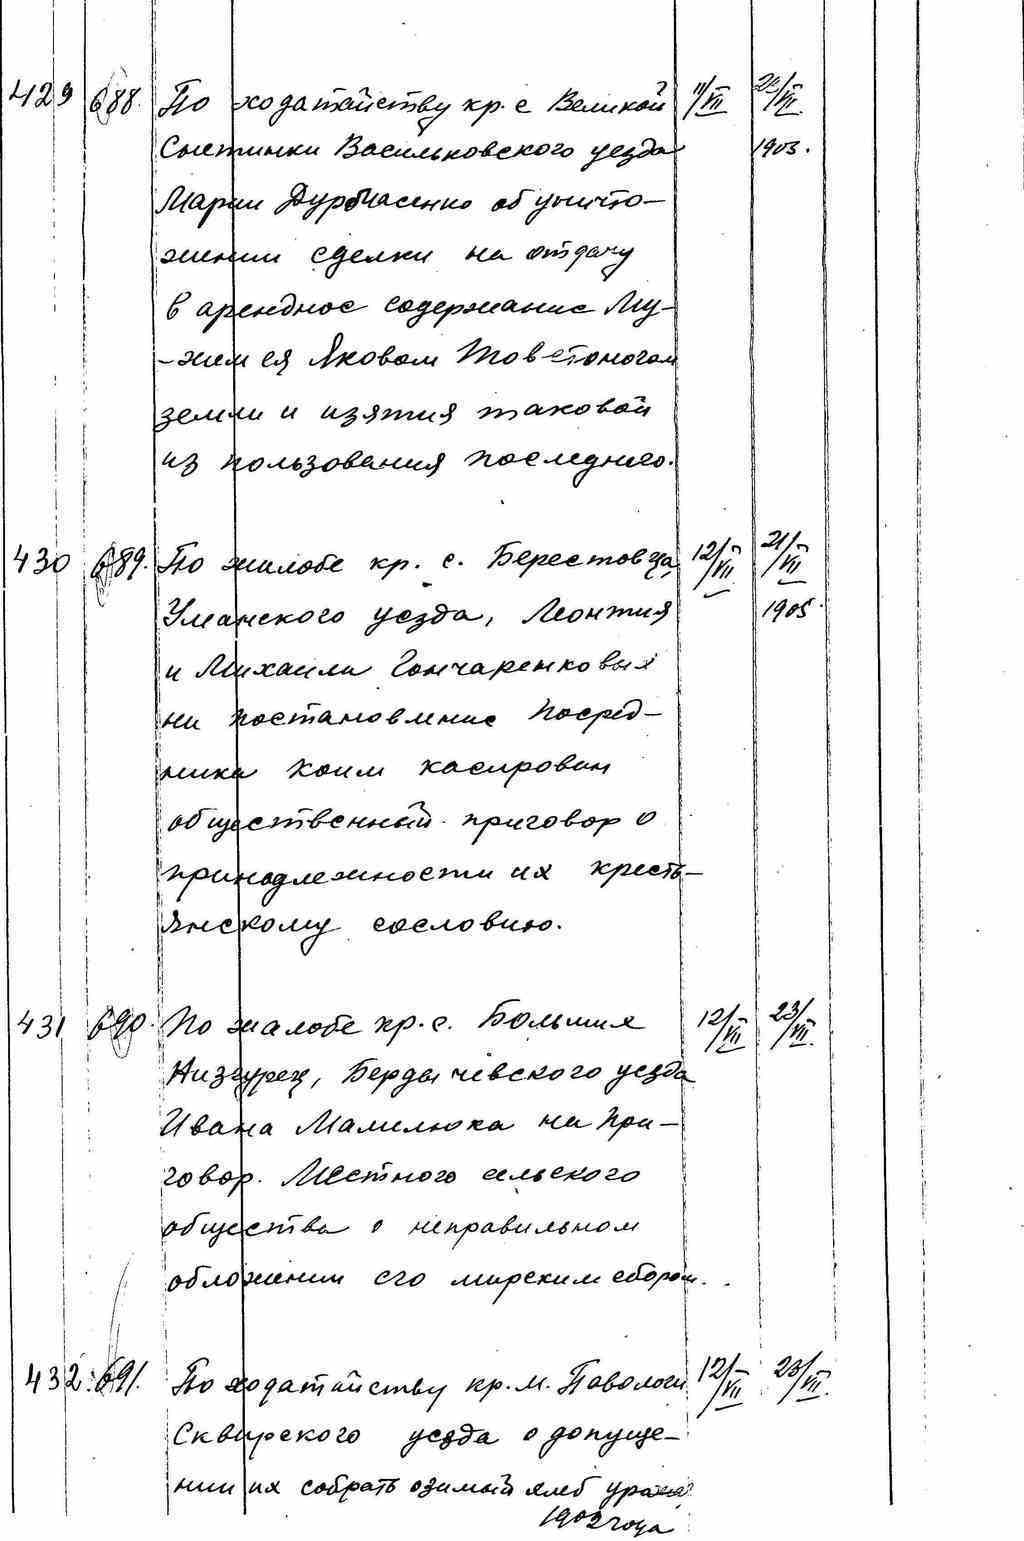 429 688. По ходатайству кр. с Великой 11/VII 20/VII
Снетинки Васильковского уезда 1903.
Марии Дурбасенко об уничто-
жении сделки на отдачу
в арендное содержание Му-
-жем ея Яковом Товстоногом
земли и изятия таковой
из пользования последнего.
430 689. По жалобе кр. с. Берестовца, 12/VII 21/VII
Уманского уезда, Леонтия 1905.
и Михаила Гончаренковых
на постановление Посред-
ника коим касирован
общественный приговор о
принадлежности их кресть-
янскому сословию.
431 690. По жалобе кр. с. Большие 12/VII 23/VII
Низгурец, Бердычевского уезда
Ивана Мамилюка на При-
говор. Местного сельского
общества о неправильном
обложении его мирским сбором.
432. 691. По ходатайству кр. м. Паволочи 12/VII 23/VII
Сквирского уезда о допуще-
нии их собрать озимый хлеб урожая
1902 года